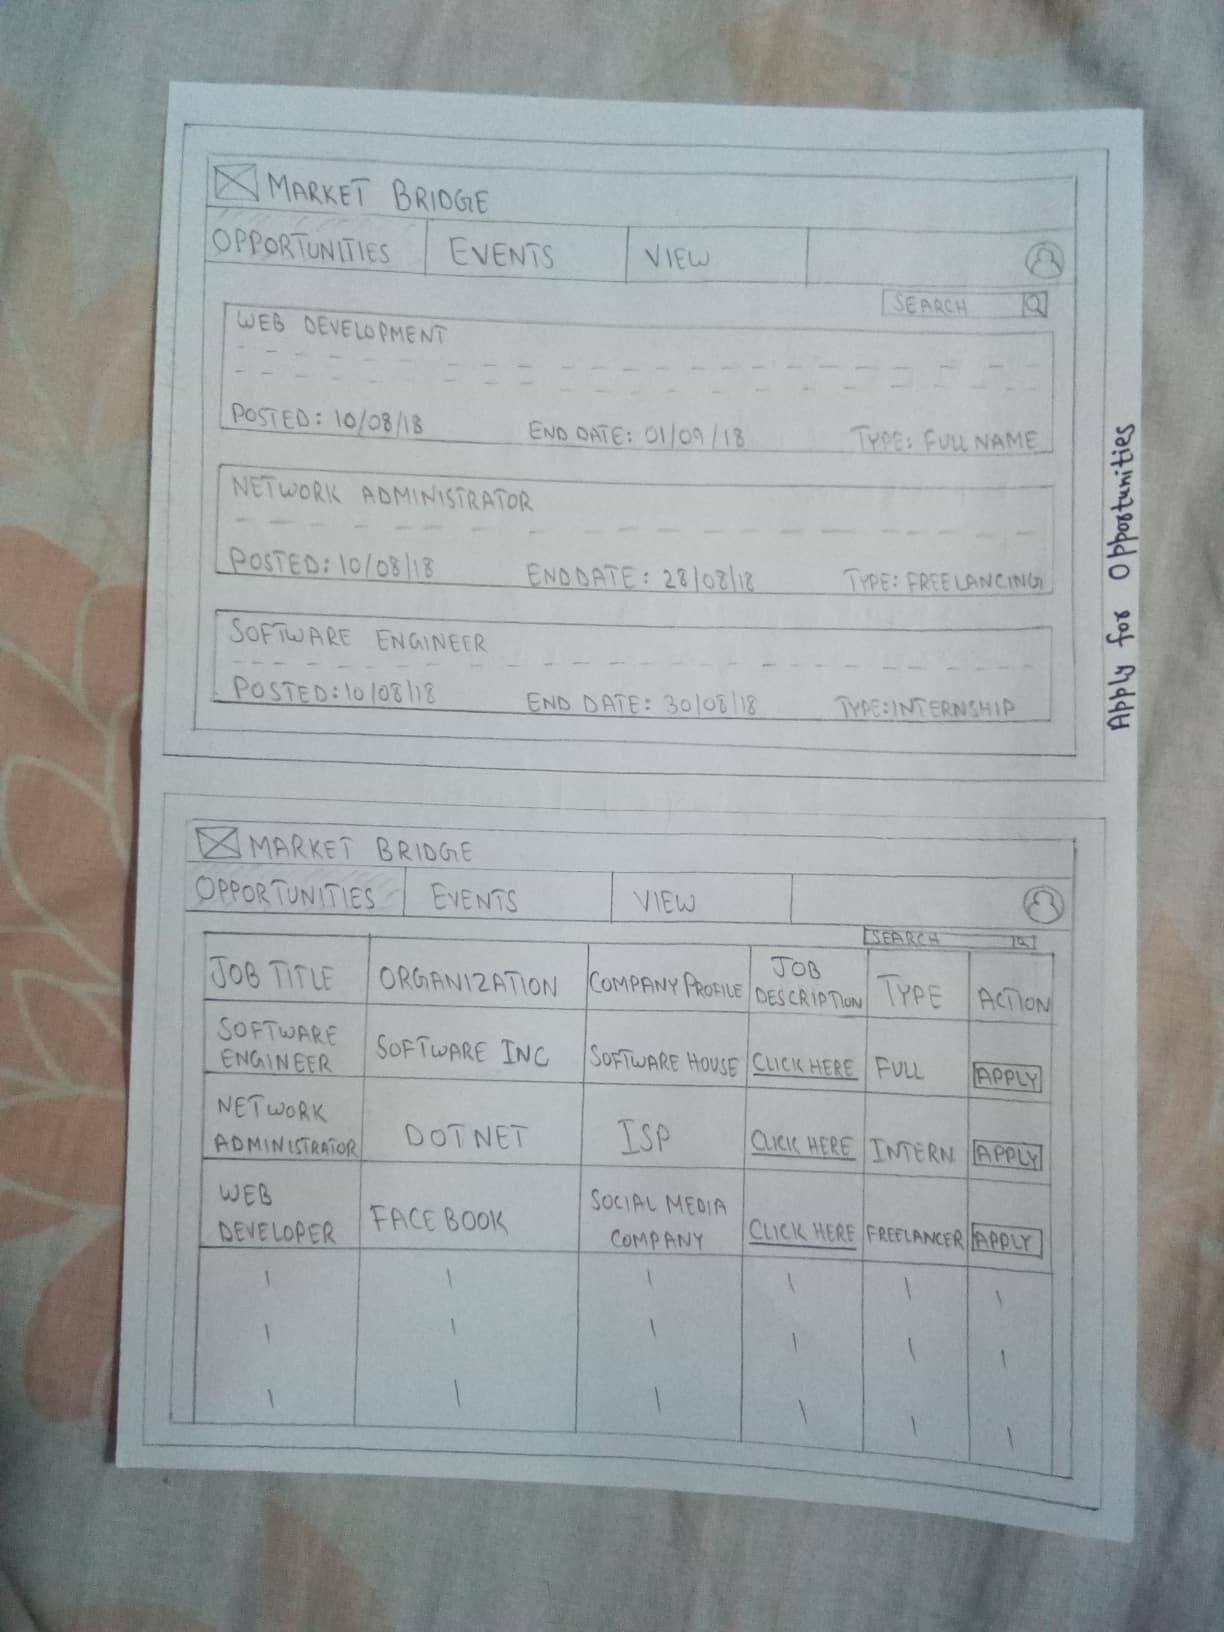 MARKET BRIDGE
OPPORTUNITIES EVENTS VIEW
SEARCH
WEB DEVELOPMENT
POSTED: 10/08/18 END DATE: 01/09/18 TYPE: FULL NAME
NETWORK ADMINISTRATOR
POSTED: 10/08/18 END DATE: 28/08/18 TYPE: FREELANCING
SOFTWARE ENGINEER
POSTED: 10/08/18 END DATE: 30/08/18 TYPE: INTERNSHIP
Apply for Opportunities
MARKET BRIDGE
OPPORTUNITIES EVENTS VIEW
SEARCH
JOB TITLE ORGANIZATION COMPANY PROFILE JOB DESCRIPTION TYPE ACTION
SOFTWARE ENGINEER SOFTWARE INC SOFTWARE HOUSE CLICK HERE FULL APPLY
NETWORK ADMINISTRATOR DOTNET ISP CLICK HERE INTERN APPLY
WEB DEVELOPER FACEBOOK SOCIAL MEDIA COMPANY CLICK HERE FREELANCER APPLY